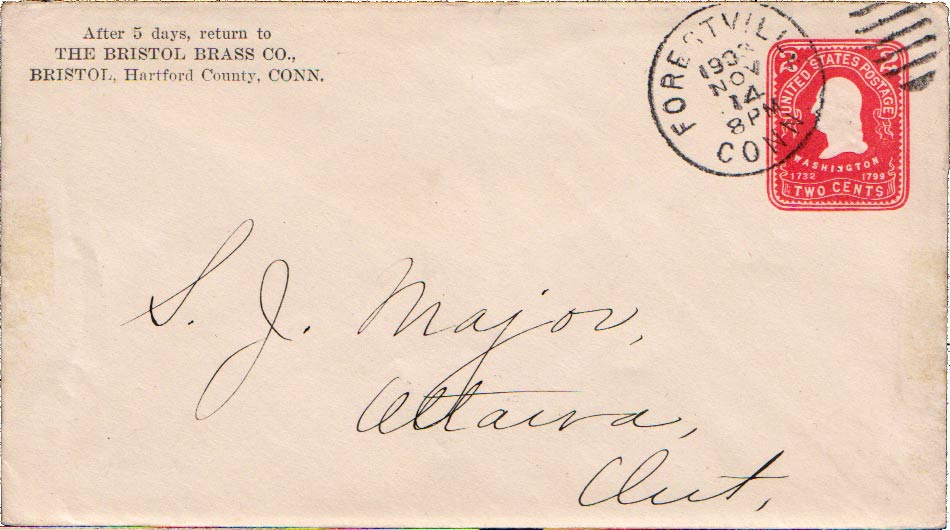 After 5 days, return to
THE BRISTOL BRASS CO.,
BRISTOL, Hartford County, CONN.
FORESTVILLE
1903
NOV
14
8 PM
CONN
2 2
UNITED STATES POSTAGE
WASHINGTON
1732 1799
TWO CENTS
S. J. Major,
Ottawa,
Ont.